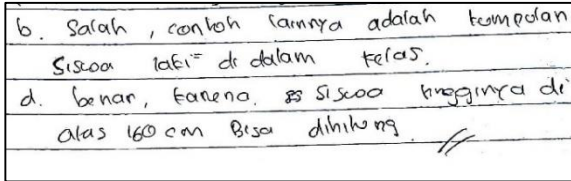 b. Salah, contoh lainnya adalah kumpulan
siswa laki² di dalam kelas.
d. benar, karena siswa tingginya di
atas 160 cm Bisa dihitung